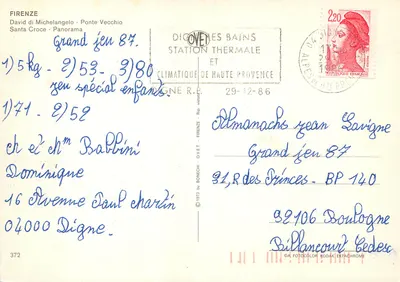 FIRENZE
David di Michelangelo - Ponte Vecchio
Santa Croce - Panorama
Grand jeu 87.
1) 5kg - 2) 53 - 3) 80
jeu spécial enfants.
1) 71 - 2) 52
Dominique
16 Avenue Paul Martin
04000 Digne.
372
DIGNE LES BAINS
STATION THERMALE
ET
CLIMATIQUE DE HAUTE PROVENCE
DIGNE R.P.
29-12-86
2,20
Almanachs Jean Lavigne
Grand jeu 87
31, R des Princes - BP 140
92106 Boulogne
Billancourt Cedex